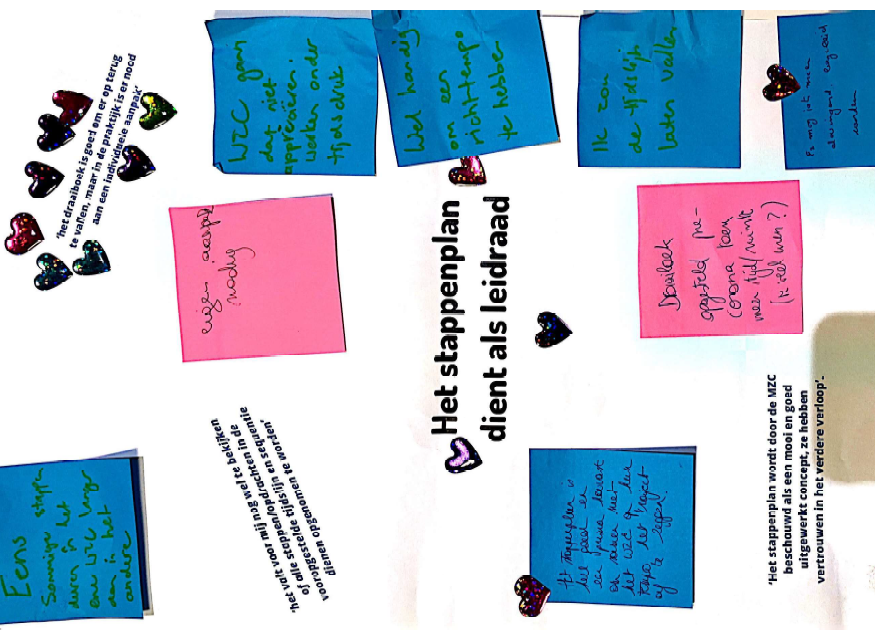 'het draaiboek is goed om er op terug
te vallen, maar in de praktijk is er nood
aan een individuele aanpak'
WZC gaan
dat niet
appreciëren.
Werken onder
tijdsdruk
Wel handig
om een
richttempo
te hebben
Ik zou
de tijdslijn
laten vallen
eigen aanpak
nodig
Het stappenplan
dient als leidraad
Draaiboek
opgesteld pre-
corona toen
meer tijd/ruimte
Eens
Sommige stappen
duren in het
ene WZC langer
dan in het
andere
'het valt voor mij nog wel te bekijken
of alle stappen/opdrachten in de
vooropgestelde tijdslijn en sequentie
dienen opgenomen te worden'
Het stappenplan is
heel goed en
een
om samen met
het WZC op hun
tempo het traject
af te leggen.
'Het stappenplan wordt door de MZC
beschouwd als een mooi en goed
uitgewerkt concept, ze hebben
vertrouwen in het verdere verloop'.